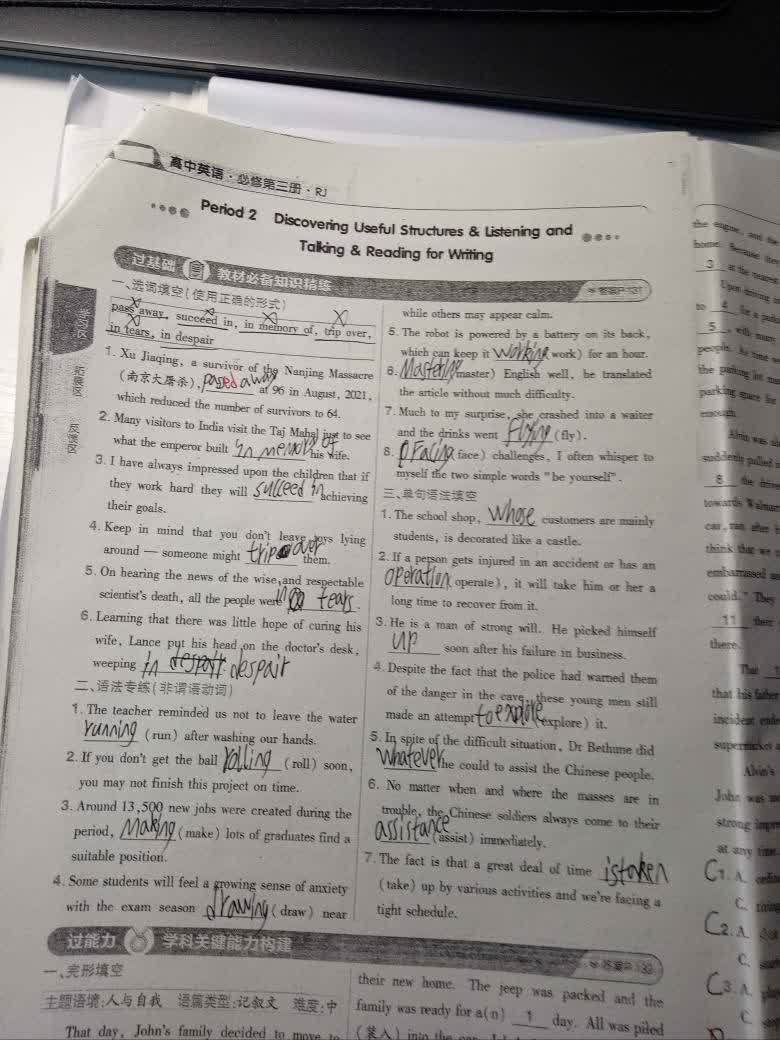 高中英语·必修第三册·RJ
Period 2 Discovering Useful Structures & Listening and
Talking & Reading for Writing
过基础 教材必备知识精练
答案P131
学习区
拓展区
反馈区
一、选词填空(使用正确的形式)
pass away, succeed in, in memory of, trip over,
in tears, in despair
1. Xu Jiaqing, a survivor of the Nanjing Massacre
(南京大屠杀), passed away at 96 in August, 2021,
which reduced the number of survivors to 64.
2. Many visitors to India visit the Taj Mahal just to see
what the emperor built in memory of his wife.
3. I have always impressed upon the children that if
they work hard they will succeed in achieving
their goals.
4. Keep in mind that you don't leave toys lying
around — someone might trip over them.
5. On hearing the news of the wise and respectable
scientist's death, all the people were in tears.
6. Learning that there was little hope of curing his
wife, Lance put his head on the doctor's desk,
weeping in despair.
二、语法专练(非谓语动词)
1. The teacher reminded us not to leave the water
running (run) after washing our hands.
2. If you don't get the ball rolling (roll) soon,
you may not finish this project on time.
3. Around 13,500 new jobs were created during the
period, Making (make) lots of graduates find a
suitable position.
4. Some students will feel a growing sense of anxiety
with the exam season drawing (draw) near
while others may appear calm.
5. The robot is powered by a battery on its back,
which can keep it working (work) for an hour.
6. Mastering (master) English well, he translated
the article without much difficulty.
7. Much to my surprise, she crashed into a waiter
and the drinks went flying (fly).
8. Facing (face) challenges, I often whisper to
myself the two simple words "be yourself".
三、单句语法填空
1. The school shop, whose customers are mainly
students, is decorated like a castle.
2. If a person gets injured in an accident or has an
operation (operate), it will take him or her a
long time to recover from it.
3. He is a man of strong will. He picked himself
up soon after his failure in business.
4. Despite the fact that the police had warned them
of the danger in the cave, these young men still
made an attempt to explore (explore) it.
5. In spite of the difficult situation, Dr Bethune did
whatever he could to assist the Chinese people.
6. No matter when and where the masses are in
trouble, the Chinese soldiers always come to their
assistance (assist) immediately.
7. The fact is that a great deal of time is taken
(take) up by various activities and we're facing a
tight schedule.
过能力 学科关键能力构建
答案P132
一、完形填空
主题语境:人与自我 语篇类型:记叙文 难度:中
That day, John's family decided to move to
their new home. The jeep was packed and the
family was ready for a(n) 1 day. All was piled
(装入) into the
the engine, and the
home. Because they
3 at the nearest
Upon
to 4 for a
5, with many
people. As time
the parking lot
parking space for
enough.
Alvin was
suddenly pulled
8 the
towards Walmart
car, ran after
think that we
embarrassed
could." They
11 their
there.
That
that his father
incident
supermarket
Alvin's
John was
strong
at any time.
C 1. A.
C.
C 2. A.
C.
C 3. A.
C.